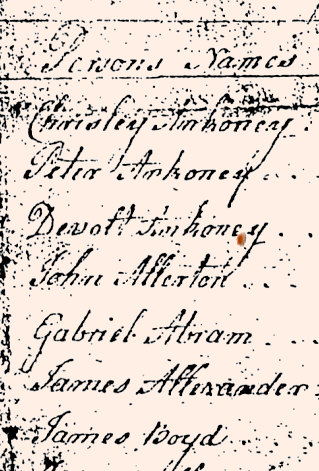 Persons Names
Chrisley Ankoney
Peter Ankoney
Devolt Ankoney
John Allerton
Gabriel Abram
James Allexander
James Boyd